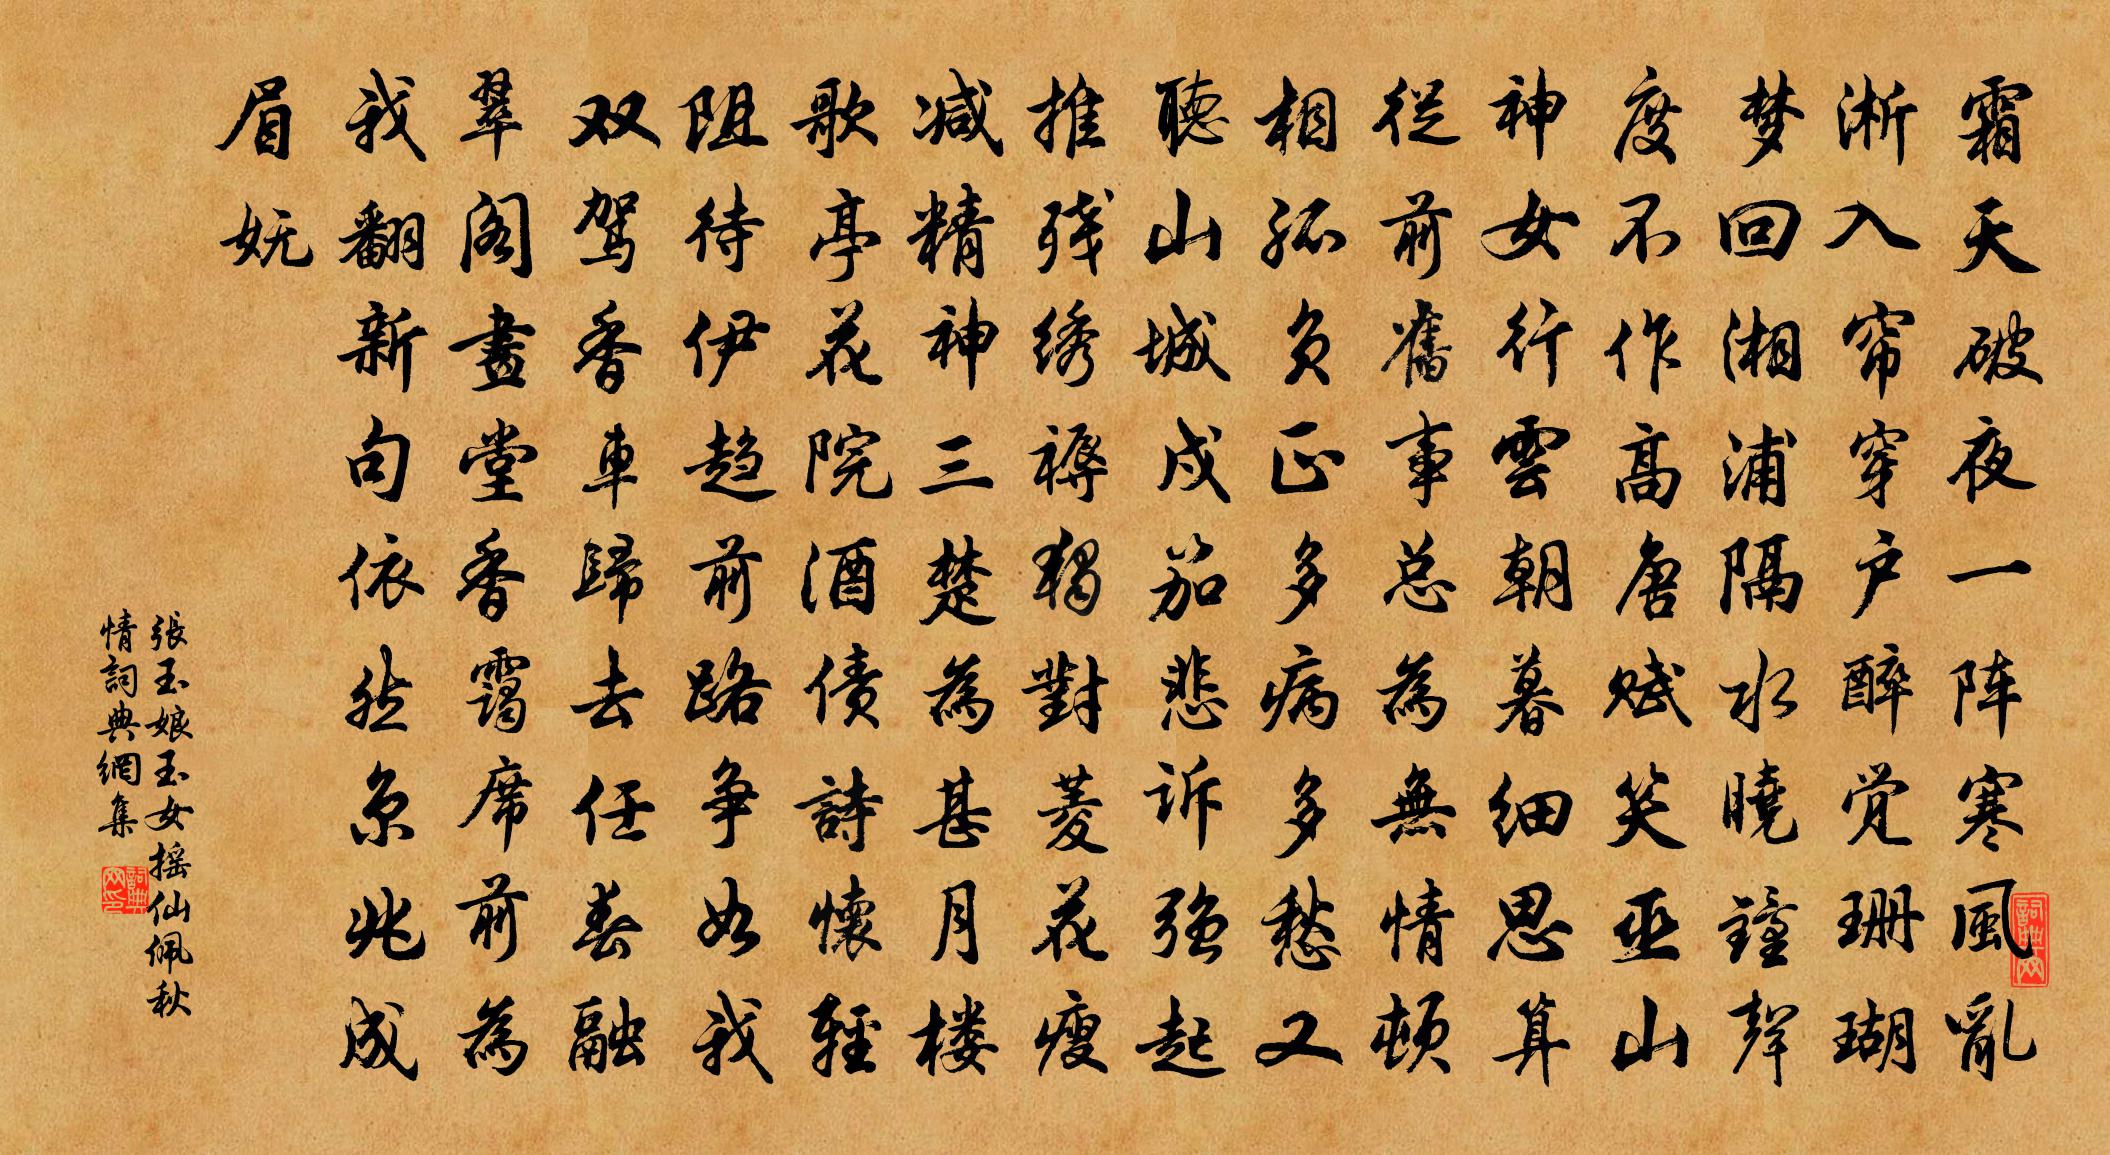 霜天破夜一阵寒風亂
淅入帘穿户醉觉珊瑚
梦回湘浦隔水曉鐘聲
度不作高唐赋笑巫山
神女行雲朝暮细思算
從前舊事总為無情顿
相孤负正多病多愁又
聽山城戍笳悲诉强起
推残绣褥獨對菱花瘦
减精神三楚為甚月楼
歌亭花院酒债詩懷輕
阻待伊趋前路争如我
双驾香車歸去任春融
翠阁畫堂香靄席前為
我翻新句依然京兆成
眉妩
張玉娘玉女摇仙佩秋
情詞典網集
詞典网印
詞典网